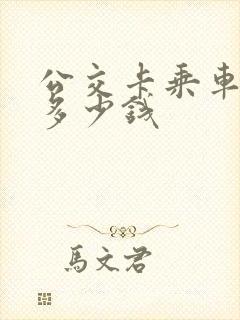 公交卡乘車
多少錢
馬文君